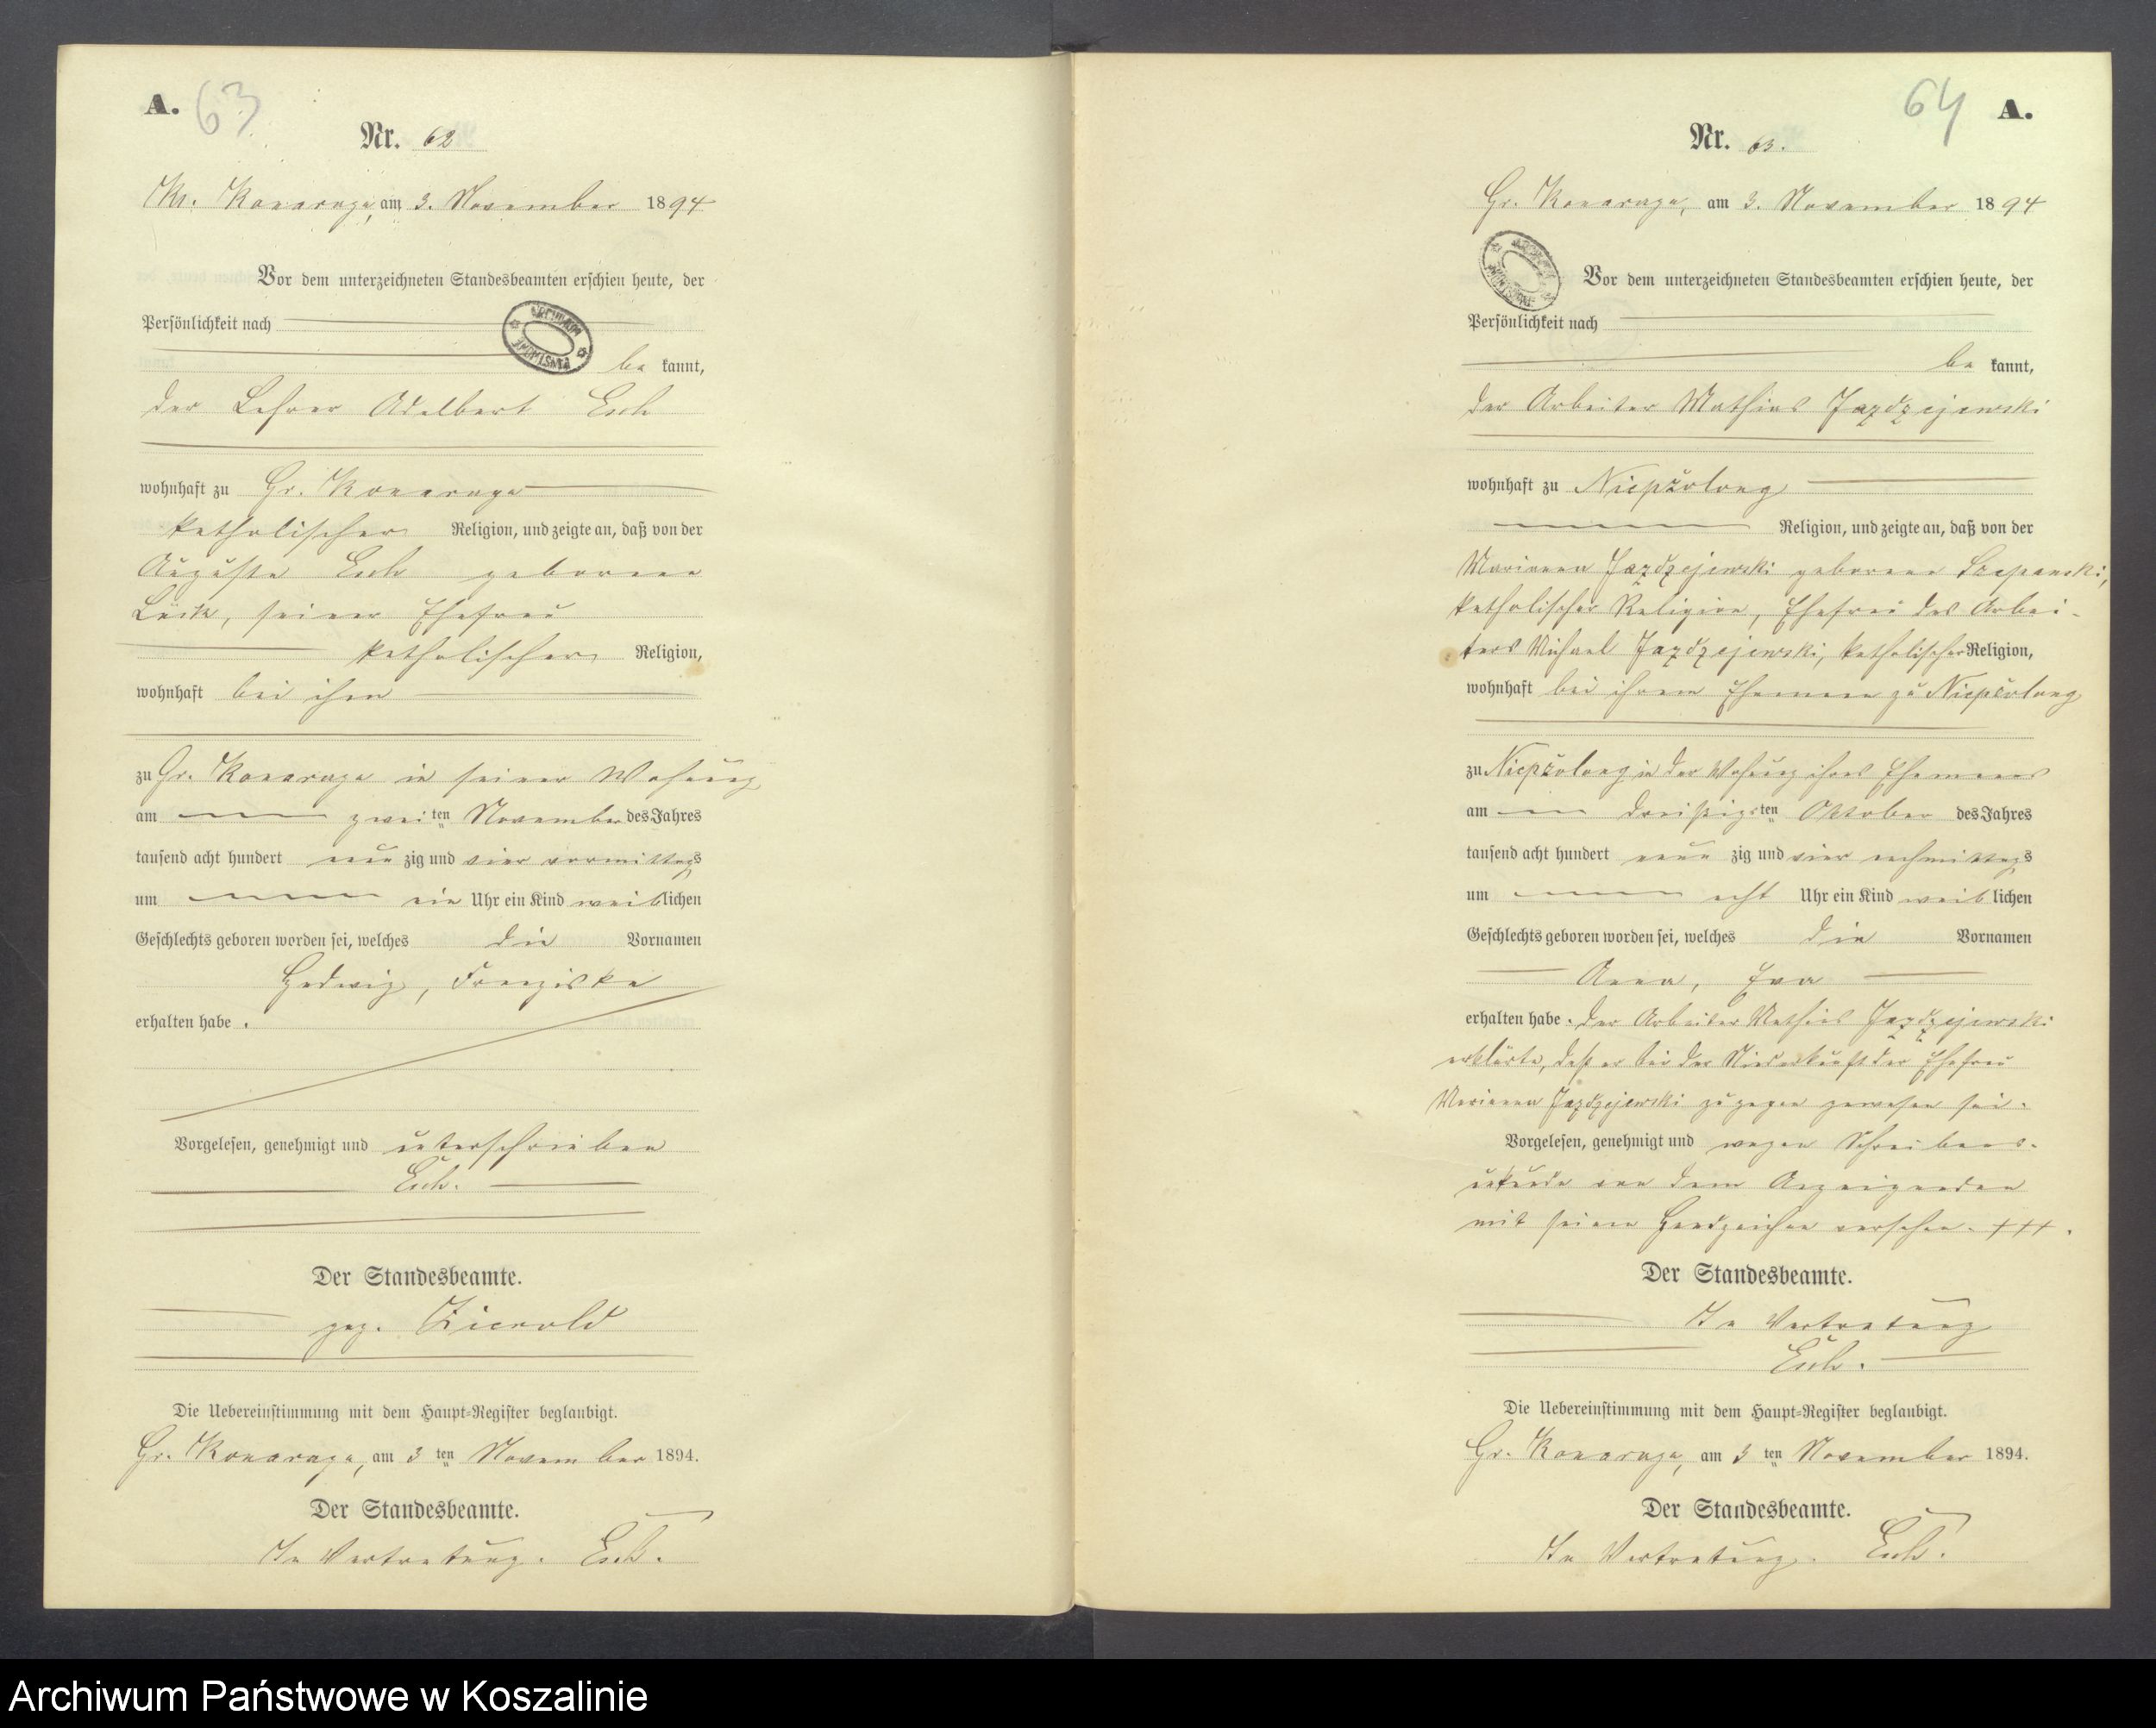 A. 63
Nr. 62
Kl. Konarczyn, am 3. November 1894
Vor dem unterzeichneten Standesbeamten erschien heute, der
Persönlichkeit nach
be kannt,
der Lehrer Adelbert Esch
wohnhaft zu Gr. Konarczyn
katholischer Religion, und zeigte an, daß von der
Auguste Esch geborene
Lück, seiner Ehefrau
katholischer Religion,
wohnhaft bei ihm
zu Gr. Konarczyn in seiner Wohnung
am zwei ten November des Jahres
tausend acht hundert neun zig und vier vormittags
um ein Uhr ein Kind weiblichen
Geschlechts geboren worden sei, welches die Vornamen
Hedwig, Franziska
erhalten habe.
Vorgelesen, genehmigt und unterschrieben
Esch.
Der Standesbeamte.
gez. Zierold
Die Uebereinstimmung mit dem Haupt-Register beglaubigt.
Gr. Konarczyn, am 3 ten November 1894.
Der Standesbeamte.
In Vertretung. Esch.
64 A.
Nr. 63.
Gr. Konarczyn, am 3. November 1894
Vor dem unterzeichneten Standesbeamten erschien heute, der
Persönlichkeit nach
be kannt,
der Arbeiter Mathias Jazdzejewski
wohnhaft zu
Religion, und zeigte an, daß von der
Marianna Jazdzejewski geborene Szepanski,
katholischer Religion, Ehefrau des Arbei-
ters Michael Jazdzejewski, katholischer Religion,
wohnhaft bei ihrem Ehemann zu
zu in der Wohnung ihres Ehemanns
am dreißigsten Oktober des Jahres
tausend acht hundert neun zig und vier nachmittags
um acht Uhr ein Kind weib lichen
Geschlechts geboren worden sei, welches die Vornamen
Anna, Eva
erhalten habe. Der Arbeiter Mathias Jazdzejewski
erklärte, daß er bei der Niederkunft der Ehefrau
Marianna Jazdzejewski zugegen gewesen sei.
Vorgelesen, genehmigt und wegen Schreibens-
unkunde von dem Anzeigenden
mit seinem Handzeichen versehen. +++.
Der Standesbeamte.
In Vertretung
Esch.
Die Uebereinstimmung mit dem Haupt-Register beglaubigt.
Gr. Konarczyn, am 3 ten November 1894.
Der Standesbeamte.
In Vertretung. Esch.
Archiwum Państwowe w Koszalinie